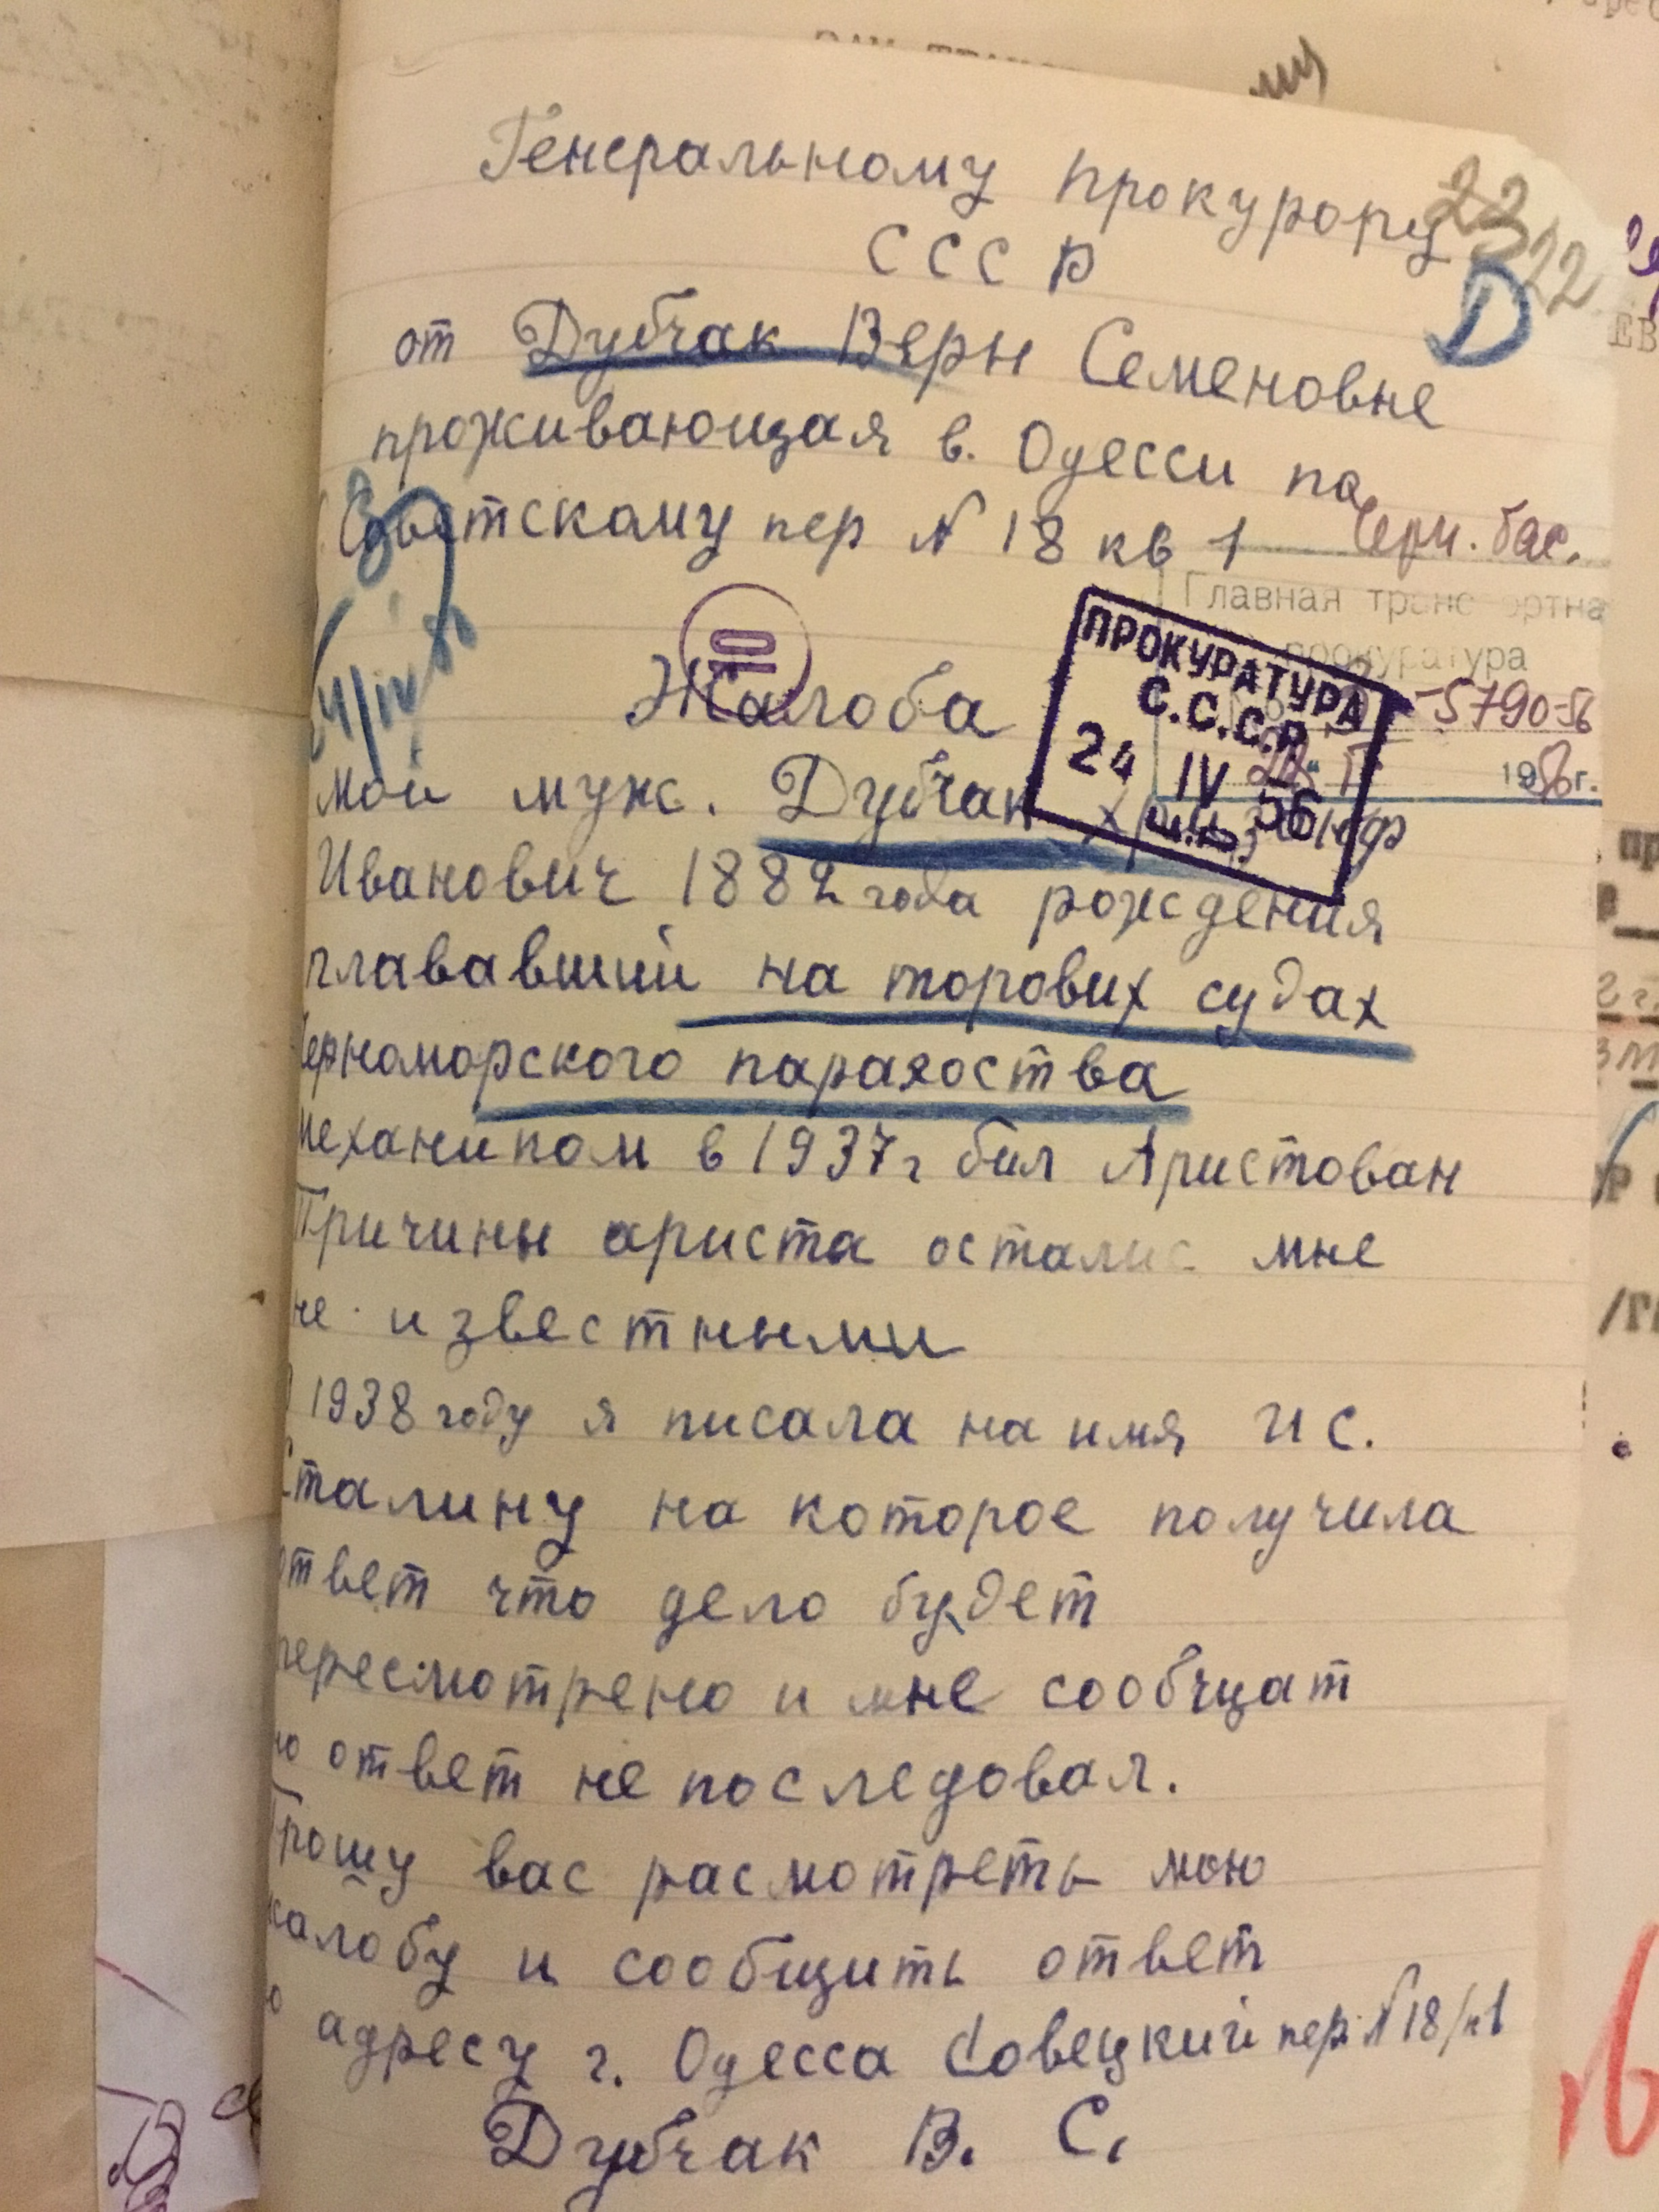 Генеральному прокурору
23
22
СССР
D
от Дубчак Веры Семеновне
проживающая в. Одесси по
Советскому пер N 18 кв 1
Черн. бас.
Главная транспортная
прокуратура
-5790-56
1956г.
ПРОКУРАТУРА
С.С.С.Р.
24 IV 56
10
24/IV
Жалоба
мой муж. Дубчак
Иванович 1882 года рождения
плававший на торових судах
Черноморского парахоства
механиком в 1937г бил Аристован
Причины ариста осталис мне
не известными
В 1938 году я писала на имя И С.
Сталину на которое получила
ответ что дело будет
пересмотрено и мне сообчщат
но ответ не последовал.
Прошу вас расмотреть мою
жалобу и сообщить ответ
по адресу г. Одесса Совецкий пер. N 18/к1
Дубчак В. С.